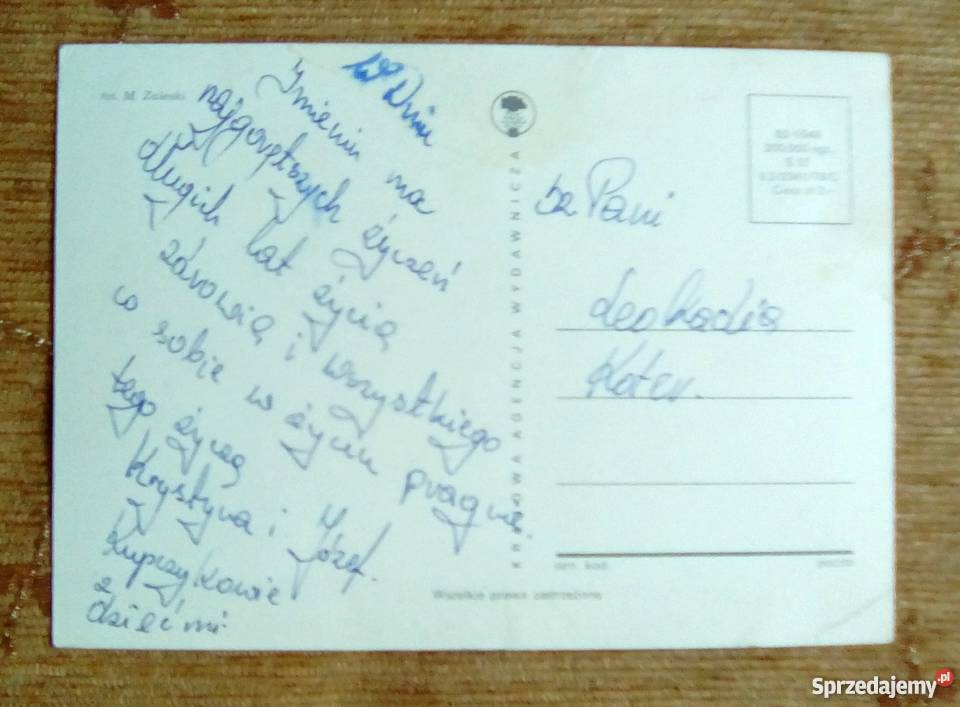 fot. M. Zaleski
W Dniu
Imienin ma
najgorętszych życzeń
długich lat życia
zdrowia i wszystkiego
co sobie w życiu pragnie.
tego życzą
Krystyna i Józef.
Kupczykowie
z
dziećmi
KRAJOWA AGENCJA WYDAWNICZA
Sz Pani
Leokadia
Koter.
200.000 egz.
Cena zł
poczta
Wszelkie prawa zastrzeżone
Sprzedajemy.pl